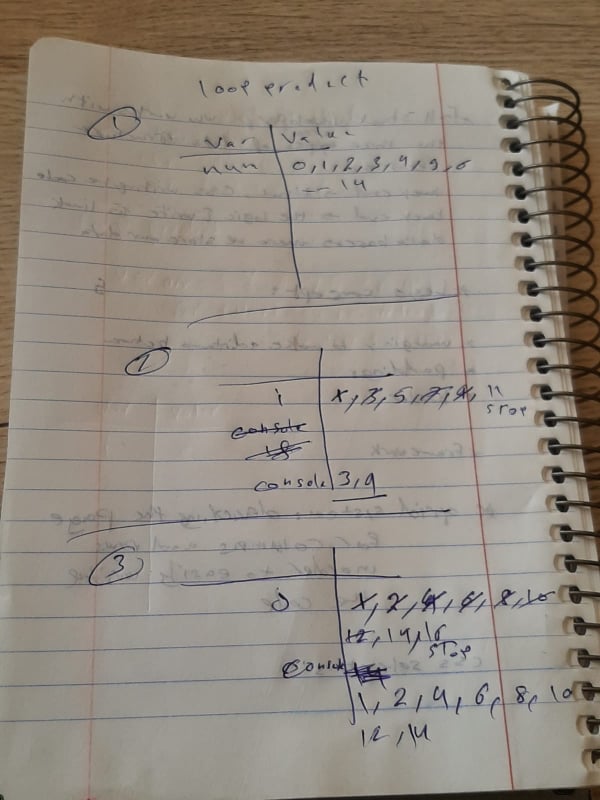 loop product
1
Var Value
num 0,1,2,3,4,5,6
-- 14
2
i 1,3,5,7,9,11
stop
console
console 3,9
3
j 1,2,4,6,8,10
12,14,16
stop
console
1,2,4,6,8,10
12,14